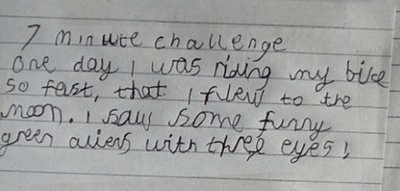 7 minute challenge
one day i was riding my bike
so fast, that i flew to the
moon. i saw some funny
green aliens with three eyes!